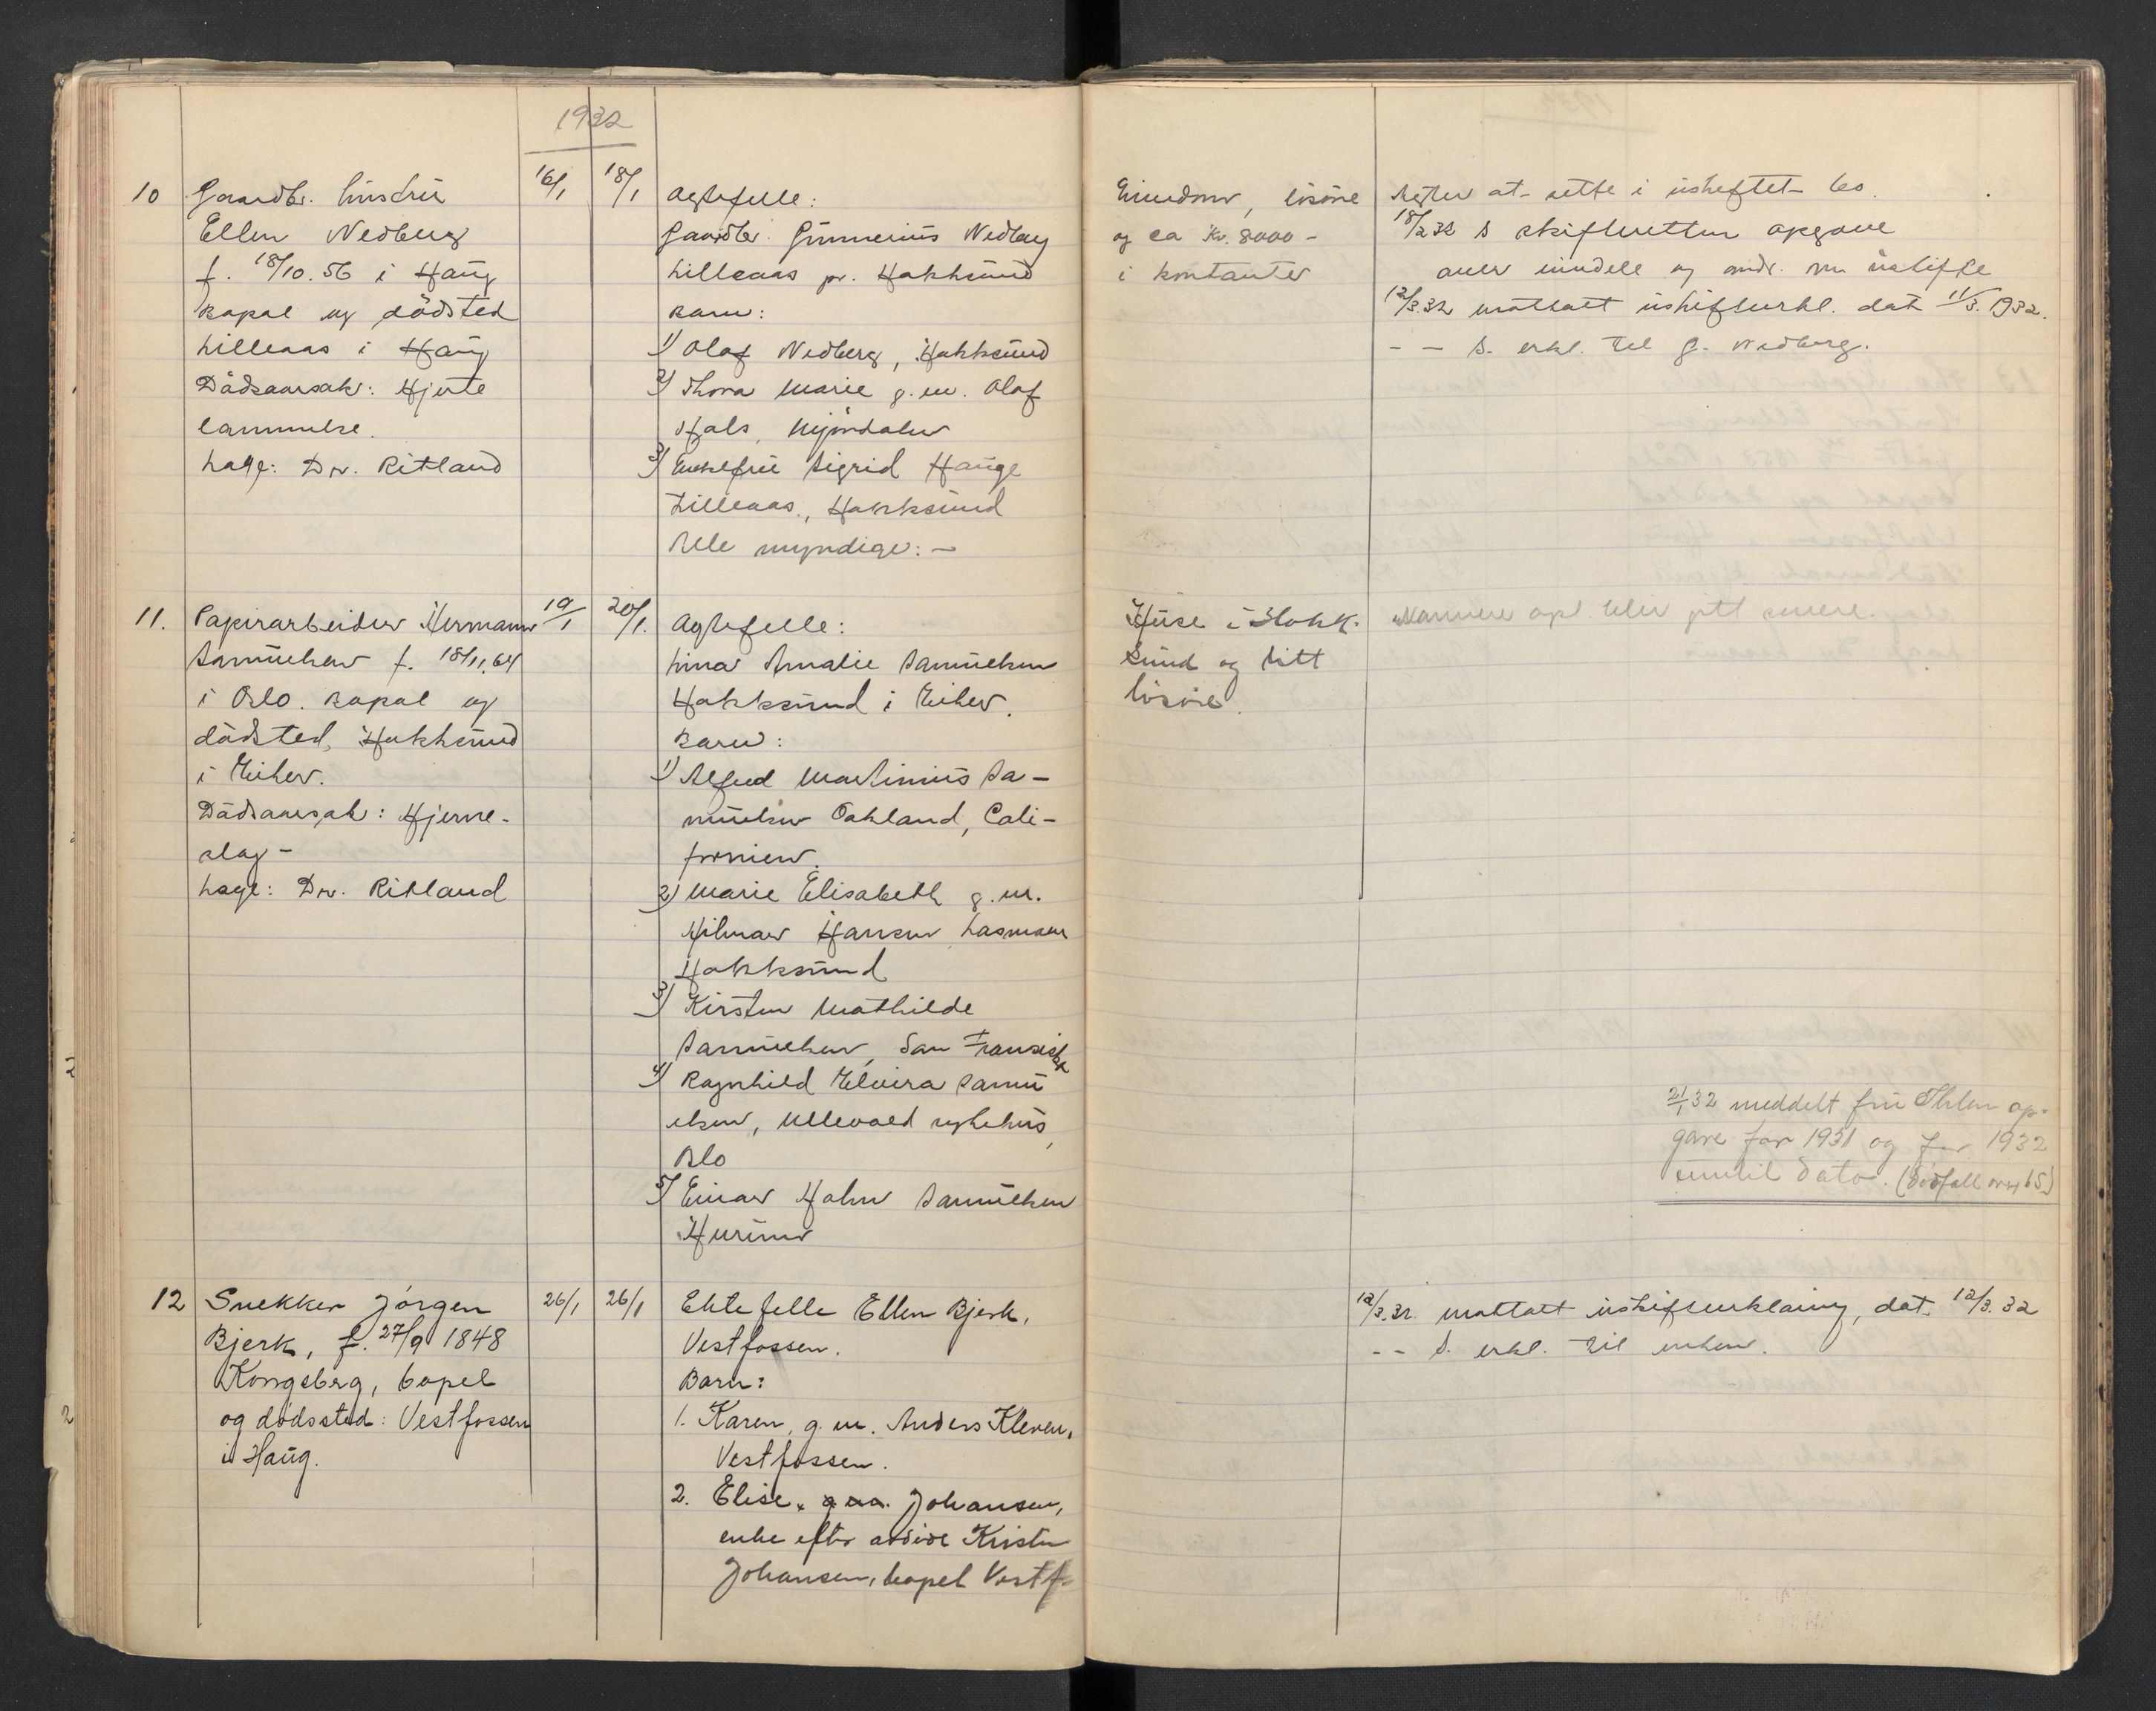 1932
10
Gaardbr. hustru
Ellen Nedberg
f. 18/10.56 i Haug
Bopæl og dödsted
Lilleaas i Haug
Dödsaarsak: Hjerte
lammelse.
Læge: Dr. Ritland
16/1
18/1
Ægtefelle:
Gaardbr. Gunnerius Nedberg
Lilleaas pr. Hokksund
Barn:
1) Olaf Nedberg, Hokksund
2) Thora Marie g.m. Olaf
Hals, Mjöndalen
3) Enkefru Sigrid Hauge
Lilleaas, Hokksund
Alle myndige: –
Eiendom, lösöre
og ca Kr. 8000 –
i kontanter
Agter at sitte i uskiftet bo.
18/2 32 s skifteretten opgave
over
12/3.32 mottatt uskifteerkl. dat 11/3. 1932.
- - s. erkl. til G. Nedberg.
11.
Papirarbeider Hermann
Samuelsen f. 18/11.64
i Oslo. Bopæl og
dödsted, Hokksund
i Eiker.
Dödsaarsak: Hjerne-
slag –
Læge: Dr. Ritland
19/1
20/1.
Ægtefelle:
Lina Amalie Samuelsen
Hokksund i Eiker.
Barn:
1) Alfred Martinius Sa–
muelsen Oakland, Cali–
fornien.
2) Marie Elisabeth g.m.
Hilmar Hansen
Hokksund
3) Kirsten Mathilde
Samuelsen, San Fransisko
4) Ragnhild Elvira Samu
elsen, Ullevaal sykehus,
Oslo
5) Einar Holm Samuelsen
Hurum
Huse i Hokk-
sund og litt
lösöre.
Nærmere opl blir gitt senere.
21/1 32 meddelt fru Ihlen op-
gave for 1931 og for 1932
inntil dato. (Dödfall 65)
12
Snekker Jörgen
Bjerk, f. 27/9 1848
Kongsberg, bopel
og dödssted: Vestfossen
i Haug.
26/1
26/1
Ektefelle Ellen Bjerk,
Vestfossen.
Barn:
1. Karen, g.m. Anders Kleven,
Vestfossen.
2. Elise, g.m. Johansen,
enke efter Kristen
Johansen, bopel Vestf-
12/3.32. mottatt uskifteerklæring, dat. 12/3.32
- - s. erkl. til enken.